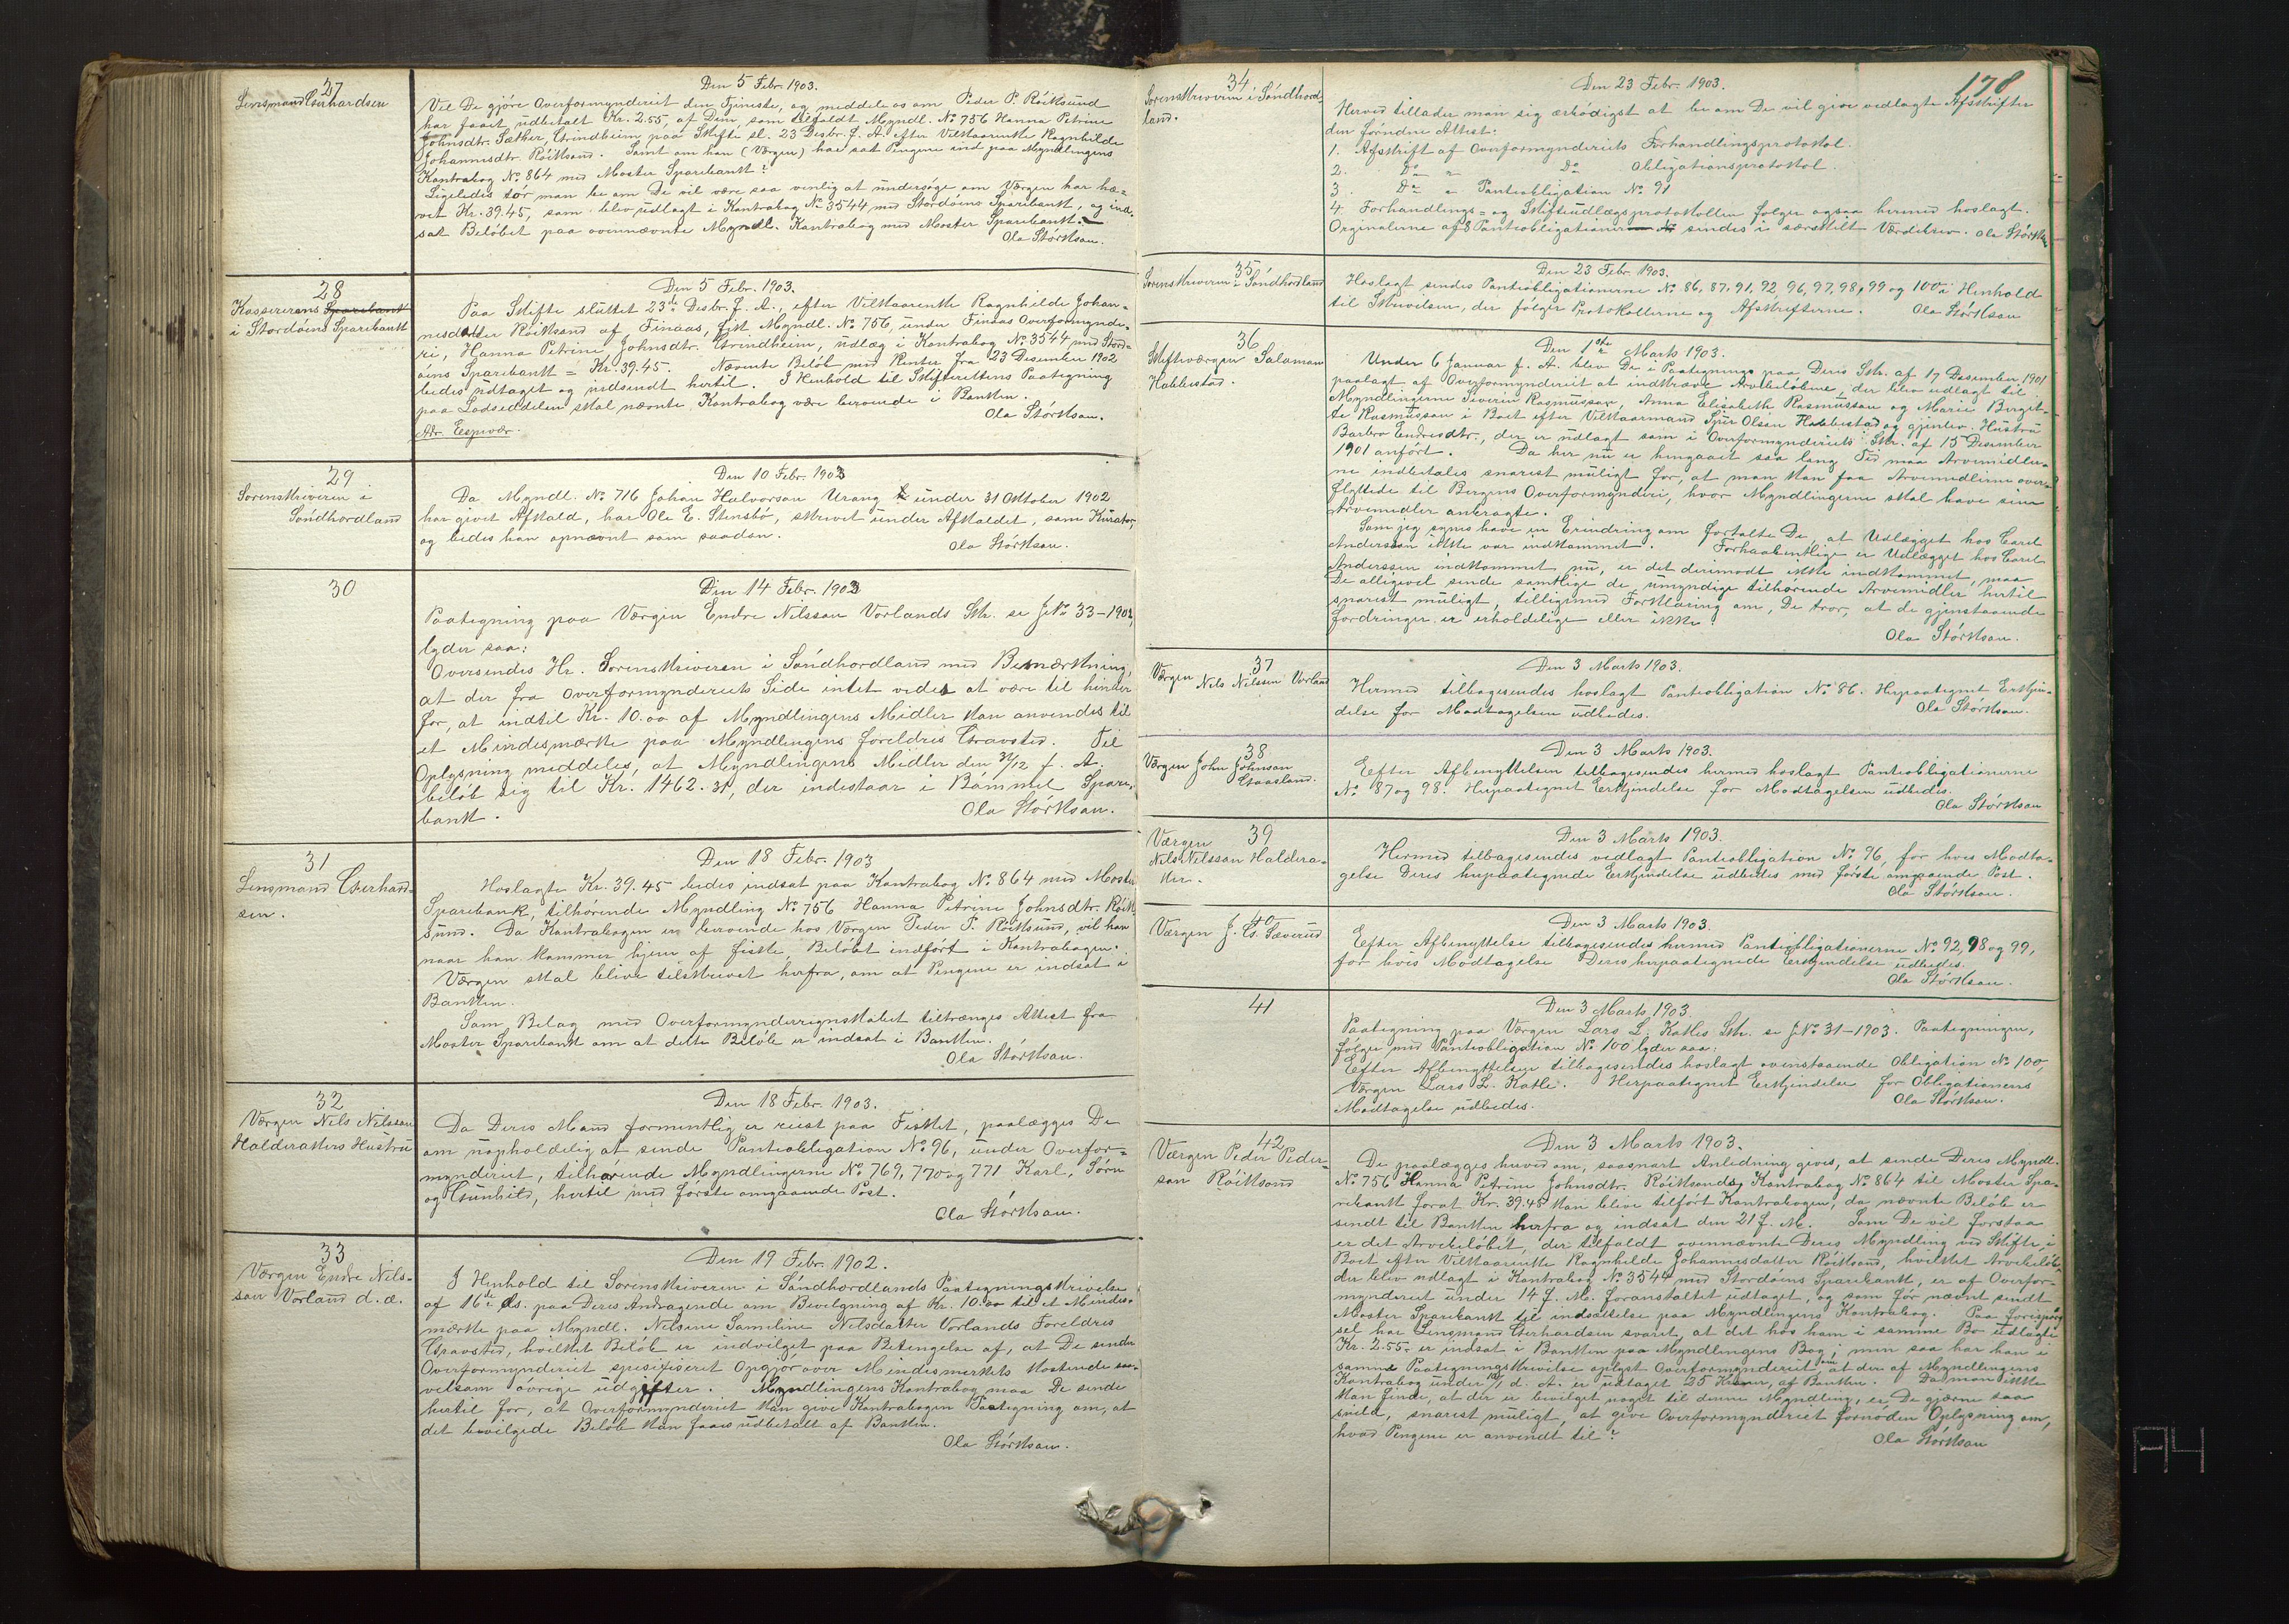 27
Lensmand Gerhardsen
Den 5 Febr. 1903.
Vil De gjøre Overformynderiet den Tjeneste, og meddele os om Peder P. Röiksund
har faaet udbetalt Kr. 2.55, af Dem, som tilfaldt Myndl. No 756 Hanna Petrine
Johnsdtr. Sæther, Grindheim paa Skifte sl. 23 Desbr. f. A. efter Vilkaarenke Ragnhilde
Johannisdtr. Röiksund. Samt om han (Værgen) har sat Pengene ind paa Myndlingens
Kontrabog No 864 med Moster Sparebank?
Ligeledes tör man be om De vil være saa venlig at undersøge om Værgen har hæ-
vet Kr. 39.45, som blev udlagt i Kontrabog No 3544 med Stordöens Sparebank, og ind-
sat Belöbet paa ovennævnte Myndl. Kontrabog med Moster Sparebank.
Ola Störkson.
28
Kassererens Sparebank
i Stordöens Sparebank
Den 5 Febr. 1903.
Paa Skifte sluttet 23de Desbr. f. A., efter Vilkaarenke Ragnhilde Johan-
nesdatter Röiksund af Finaas, fik Myndl. No 756, under Finaas Overformynde-
ri, Hanna Petrine Johnsdtr. Grindheim, udlæg i Kontrabog No 3544 med Stord-
öens Sparebank = Kr. 39.45. Nævnte Belöb med Renter fra 23 Desember 1902
bedes udtaget og indsendt hertil. I Henhold til Skifterettens Paategning
paa Lodseddelen skal nævnte Kontrabog være beroende i Banken.
Ola Störkson.
Adr. Espevær.
29
Sorenskriveren i
Söndhordland
Den 10 Febr. 1903
Da Myndl. No 716 Johan Halvorson Urang under 31 Oktober 1902
har givet Afkald, har Ole E. Stensbö, skrevet under Afkaldet, som Kurator,
og bedes han opnævnt som saadan.
Ola Störkson.
30
Den 14 Febr. 1903
Paategning paa Værgen Endre Nilsson Vorlands Skr. se J.No 33-1902,
lyder saa:
Oversendes Hr. Sorenskriveren i Söndhordland med Bemærkning,
at der fra Overformynderiets Side intet vides at være til hinder
for, at indtil Kr. 10.00 af Myndlingens Midler kan anvendes til
et Mindesmærke paa Myndlingens foreldres Gravsted. Til
Oplysning meddeles, at Myndlingens Midler den 31/12 f. A.
belöb sig til Kr. 1462.31, der indestaar i Bömmel Spare-
bank.
Ola Störkson.
31
Lensmand Gerhard-
sen.
Den 18 Febr. 1903
Hoslagte Kr. 39.45 bedes indsat paa Kontrabog No 864 med Moster
Sparebank, tilhörende Myndling No 756 Hanna Petrine Johnsdtr. Röik-
sund. Da Kontrabogen er beroende hos Værgen Peder P. Röiksund, vil han
naar han kommer hjem af fiske, Belöbet indfört i Kontrabogen.
Værgen skal blive tilskrevet herfra, om at Pengene er indsat i
Banken.
Som Bilag med Overformynderregnskabet tiltrænges Attest fra
Moster Sparebank om at dette Belöb er indsat i Banken.
Ola Störkson.
32
Værgen Nils Nilsson
Halderakers Hustru
Den 18 Febr. 1903.
Da Deres Mand formentlig er reist paa Fisket, paalægges De
om uopholdelig at sende Pantiobligation No 96, under Overfor-
mynderiet, tilhørende Myndlingerne No 769, 770 og 771 Karl, Sören
og Gunhild, hertil med förste omgaaende Post.
Ola Störkson.
33
Værgen Endre Nils-
son Vorland d. æ.
Den 19 Febr. 1902.
I Henhold til Sorenskriveren i Söndhordlands Paategningsskrivelse
af 16de ds. paa Deres Andragende om Bevilgning af Kr. 10.00 til et Mindes-
mærke paa Myndl. Nilsine Samiline Nilsdatter Vorlands Foreldres
Gravsted, hvilket Belöb er indvilget paa Betingelse af, at De sender
Overformynderiet spesifiseret Opgjör over Mindesmerkets Kostende saa-
velsom övrige udgifter. Myndlingens Kontrabog maa De sende
hertil for, at Overformynderiet kan give Kontrabogen Paategning om, at
det bevilgede Belöb kan faaes udbetalt af Banken.
Ola Störkson.
178
34
Sorenskriveren i Söndhord-
land.
Den 23 Febr. 1903.
Herved tillader man sig ærbödigst at be om De vil give vedlagte Afskrifter
den fornödne Attest:
1. Afskrift af Overformynderiets Forhandlingsprotokol.
2. Do " Do Obligationsprotokol.
3. Do " Pantiobligation No 91
4. Forhandlings- og Skifteudlægsprotokollen følger ogsaa hermed hoslagt.
Orginalerne af 8 Pantiobligationer sendes i særskilt Værdibrev. Ola Störkson
35
Sorenskriveren i Söndhordland
Den 23 Febr. 1903.
Hoslagt sendes Pantiobligationerne No 86, 87, 91, 92, 96, 97, 98, 99 og 100 i Henhold
til Skrivelsen, der fölger Protokollerne og Afskrifterne. Ola Störkson
36
Skifteværgen Salamon
Habbestad.
Den 1ste Marts 1903.
Under 6 Januar f. A. blev De i Paategnings paa Deres Skr. af 17 Desember 1901
paalagt af Overformynderiet at indkræve Arvebelöbene, der blev udlagt til
Myndlingerne Siverin Rasmusson, Anna Elisabeth Rasmusson og Marie Birgit-
te Rasmusson i Boet efter Vilkaarmand Sjur Olsen Habbestad og gjenlev. Hustru
Barbro Endresdtr., der er udlagt som i Overformynderiets Skr. af 15 Desember
1901 anfört. Da her nu er hengaaet saa lang Tid maa Arvemidler-
ne indbetales snarest muligt for, at man kan faa Arvemidlerne over-
flyttede til Bergens Overformynderi, hvor Myndlingerne skal have sine
Arvemidler anbragte.
Som jeg synes have en Erindring om fortalte De, at Udlægget hos Carl
Anderson ikke var indkommet. Forhaabentlige er Udlægget hos Carl
Andersson indkommet nu, er det derimod ikke indkommet, maa
De alligevel sende samtlige de umyndige tilhörende Arvemidler hertil
snarest muligt, tilligemed Forklaring om, De tror, at de gjenstaaende
fordringer er erholdelige eller ikke?
Ola Störkson.
37
Værgen
Nils Nilsson Vorland
Den 3 Marts 1903.
Hermed tilbagesendes hoslagt Pantiobligation No 86. Herpaategnet Erkjen-
delse for Modtagelsen udbedes.
Ola Störkson.
38
Værgen John Johnson
Gaasland.
Den 3 Marts 1903.
Efter Afbenyttelsen tilbagesendes hermed hoslagt Pantiobligationerne
No 87 og 98. Herpaategnet Erkjendelse for Modtagelsen udbedes.
Ola Störkson
39
Værgen
Nils Nilsson Haldera-
ker.
Den 3 Marts 1903.
Hermed tilbagesendes vedlagt Pantiobligation No 96, for hvis Modta-
gelse Deres herpaategnede Erkjendelse udbedes med förste omgaaende Post.
Ola Störkson.
40
Værgen J. G. Sæverud
Den 3 Marts 1903.
Efter Afbenyttelse tilbagesendes hermed Pantiobligationerne No 92, 98 og 99,
for hvis Modtagelse Deres herpaategnede Erkjendelse udbedes.
Ola Störkson.
41
Den 3 Marts 1903.
Paategning paa Værgen Lars L. Katles Skr. se J.No 31-1903. Paategningen,
fölger med Pantiobligation No 100 lyder saa:
Efter Afbenyttelsen tilbagesendes hoslagt ovenstaaende Obligation No 100,
Værgen Lars L. Katle. Herpaategnet Erkjendelse for Obligationens
Modtagelse udbedes.
Ola Störkson.
42
Værgen Peder Peder-
son Röiksund
Den 3 Marts 1903.
De paalægges herved om, saasnart Anledning gives, at sende Deres Myndl.
No 756 Hanna Petrine Johnsdtr. Röiksunds Kontrabog No 864 til Moster Spa-
rebank forat Kr. 39.45 kan blive tilført Kontrabogen, da nævnte Belöb er
sendt til Banken herfra og indsat den 21 f. M. Som De vil forstaa
er det Arvebelöbet, der tilfaldt ovennævnte Deres Myndling ved Skifte i
Boet efter Vilkaarenke Ragnhilde Johannesdatter Röiksund, hvilket Arvebelöb,
der blev udlagt i Kontrabog No 3544 med Stordöens Sparebank, er af Overfor-
mynderiet under 14 f. M. foranstaltet udtaget, og som för nævnt sendt
Moster Sparebank til indsættelse paa Myndlingens Kontrabog. Paa forespörg-
sel har Lensmand Gerhardsen svaret, at det hos ham i samme Bo udlagte
Kr. 2.55 er indsat i Banken paa Myndlingens Bog; men saa har han i
samme Paategningsskrivelse oplyst Overformynderiet om at der af Myndlingens
Kontrabog under d. A. er udtaget 35 Kroner, af Banken. Da man ikke
kan finde, at der er bevilget noget til denne Myndling, er De gjerne saa
snild, snarest muligt, at give Overformynderiet fornöden Oplysning om,
hvad Pengene er anvendt til?
Ola Störkson